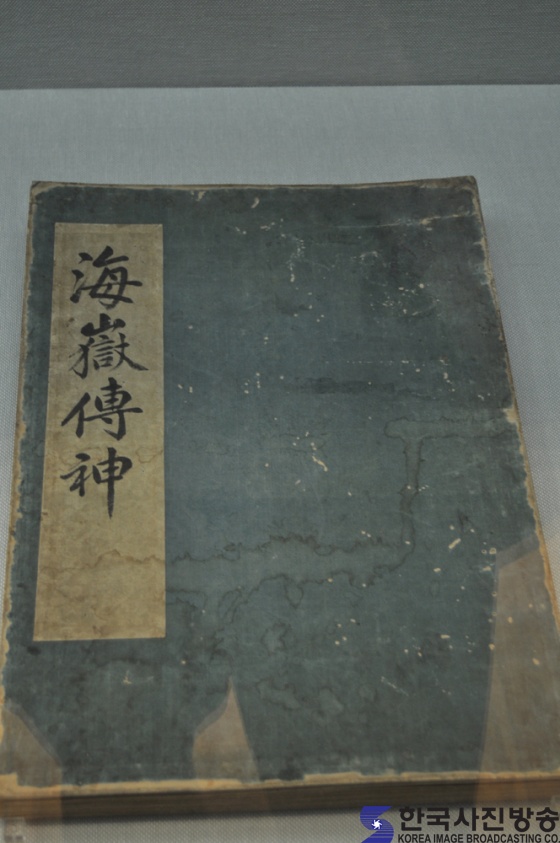 海嶽傳神
한국사진방송
KOREA IMAGE BROADCASTING CO.